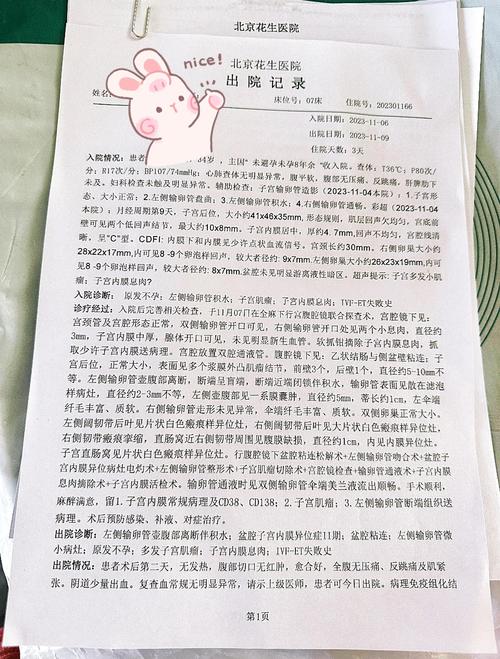 北京花生医院
nice!
北京花生医院
出 院 记 录
姓名: 床位号: 07床 住院号: 202301166
入院日期: 2023-11-06
出院日期: 2023-11-09
住院天数: 3天
入院情况: 患者 34岁 , 主因" 未避孕未孕8年余 "收入院。查体: T36℃; P80次/
分; R17次/分; BP107/74mmHg; 心肺查体无明显异常。腹平软, 腹部无压痛、反跳痛, 肝脾肋下
未及。妇科检查未触及明显异常。辅助检查: 子宫输卵管造影 (2023-11-04本院) : 1.子宫形
态、大小正常; 2.左侧输卵管盘曲; 3.左侧输卵管积水; 4.右侧输卵管通畅。彩超 (2023-11-04
本院) : 月经周期第9天, 子宫后位, 大小约41x46x35mm, 形态规则, 肌层回声欠均匀, 宫底前
壁可见两个低回声结节, 最大约10x8mm。子宫内膜居中, 厚约4.7mm,回声不均匀, 宫腔线清
晰, 呈"C"型、CDFI: 内膜下和内膜见少许点状血流信号。宫颈长约30mm。右侧卵巢大小约
28x22x17mm,内可见8 -9个卵泡样回声, 较大者直径约: 9x7mm.左侧卵巢大小约26x23x19mm,内可
见8 -9个卵泡样回声, 较大者直径约: 8x7mm.盆腔未见明显游离性暗区。超声提示: 子宫多发小肌
瘤; 子宫内膜息肉?
入院诊断: 原发不孕; 左侧输卵管积水; 子宫肌瘤; 子宫内膜息肉; IVF-ET失败史
诊疗经过: 入院后完善相关检查, 于11月07日在全麻下行宫腹腔镜联合探查术, 宫腔镜下见:
宫颈管及宫腔形态正常, 双侧输卵管开口可见, 右侧输卵管开口处见两个小息肉, 直径约
3mm, 子宫内膜中厚, 腺体开口可见, 未见明显新生血管。软抓钳摘除子宫内膜息肉, 抓
取少许子宫内膜送病理。宫腔放置双腔通液管。腹腔镜下见: 乙状结肠与侧盆壁粘连; 子
宫后位, 正常大小, 表面见多个浆膜外凸肌瘤结节, 前壁3个, 后壁1个, 直径约5-10mm不
等。左侧输卵管壶腹部离断, 断端呈盲端, 断端近端闭锁伴积水, 输卵管表面见散在滤泡
样病灶, 直径约2-3mm不等, 左侧壶腹部见一系膜囊肿, 直径约5mm, 蒂长约1cm, 左伞端
纤毛丰富、质软。右侧输卵管走形未见异常, 伞端纤毛丰富、质软。双侧卵巢正常大小。
左侧阔韧带后叶见片状白色瘢痕样异位灶, 右侧阔韧带后叶见大片状白色瘢痕样异位灶,
右侧韧带瘢痕挛缩, 直肠窝近右侧韧带周围见腹膜缺损, 直径约1cm, 内见内膜异位灶。
子宫直肠窝见片状白色瘢痕样异位灶。行腹腔镜下盆腔粘连松解术+左侧输卵管吻合术+盆腔子
宫内膜异位病灶电灼术+左侧输卵管整形术+子宫肌瘤切除术+宫腔镜检查+输卵管通液术+子宫内膜
息肉摘除术+子宫内膜活检术。输卵管通液时见双侧输卵管伞端美兰液流出顺畅。手术顺利,
麻醉满意, 留1.子宫内膜常规病理及CD38、CD138; 2.子宫肌瘤; 3.左侧输卵管断端组织送
病理。术后预防感染、补液、对症治疗。
出院诊断: 左侧输卵管壶腹部离断伴积水; 盆腔子宫内膜异位症II期; 盆腔粘连; 左侧输卵管微
小病灶; 原发不孕; 多发子宫肌瘤; 子宫内膜息肉; IVF-ET失败史
出院情况: 患者术后第二天, 无发热, 腹部切口无红肿, 愈合好, 全腹无压痛、反跳痛及肌紧
张。阴道少量出血。复查血常规无明显异常, 请示上级医师, 患者可今日出院。病理免疫组化结
第1页